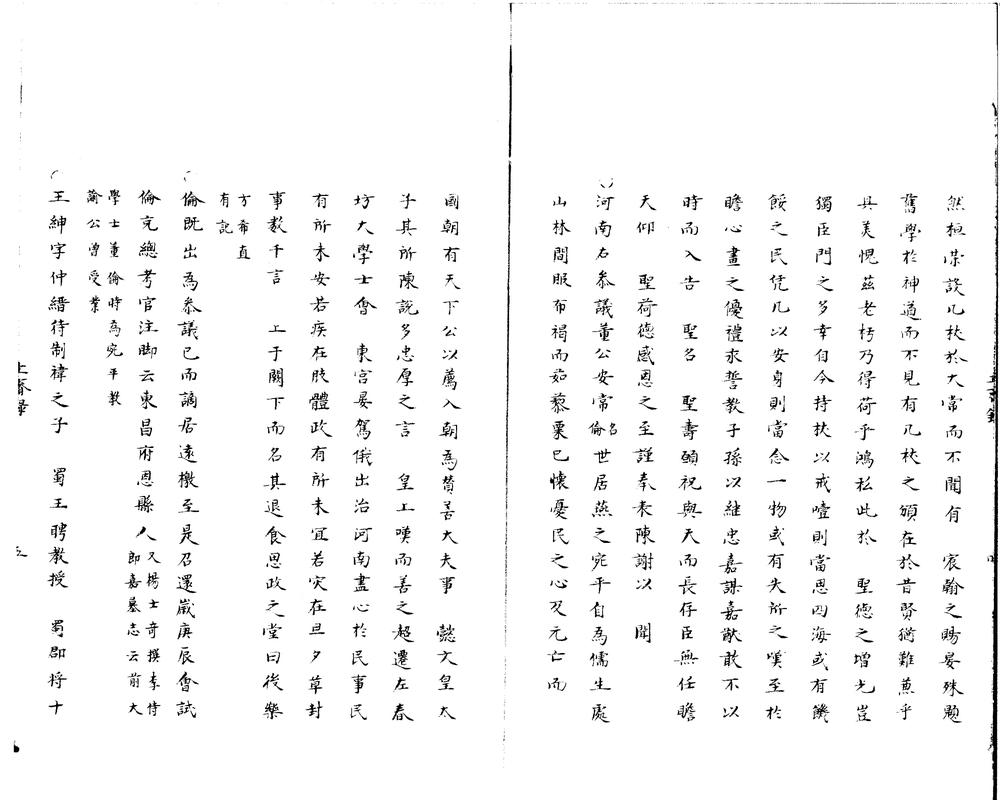 然桓榮談几杖於大常而不聞有　宸翰之賜晏殊題
舊學於神道而不見有几杖之頒在於昔賢猶難兼乎
具美愧茲老朽乃得荷乎鴻私此於　聖德之增光豈
獨臣門之多幸自今持杖以戒噎則當思四海或有饑
餒之民凭几以安身則當念一物或有失所之嘆至於
瞻心畫之優禮永誓教子孫以繼忠嘉謀嘉猷敢不以
時而入告　聖名　聖壽願祝與天而長存臣無任瞻
天仰　聖荷德感恩之至謹奉表陳謝以　聞
河南右叅議董公安常名倫世居燕之宛平自為儒生處
山林間服布褐而茹藜粟已懷憂民之心及元亡而
國朝有天下公以薦入朝為贊善大夫事　懿文皇太
子其所陳說多忠厚之言　皇上嘆而善之超遷左春
坊大學士會　東宮晏駕俄出治河南盡心於民事民
有所未安若疾在肢體政有所未宜若灾在旦夕草封
事數千言　上于闕下而名其退食思政之堂曰後樂
方希直有記
倫既出為叅議已而謫居遠檄至是召還嵗庚辰會試
倫充總考官注脚云東昌府恩縣人又楊士奇撰李侍郎嘉墓志云前大
學士董倫時為宛平教諭公曽受業
王紳字仲縉待制禕之子　蜀王聘教授　蜀郡将十